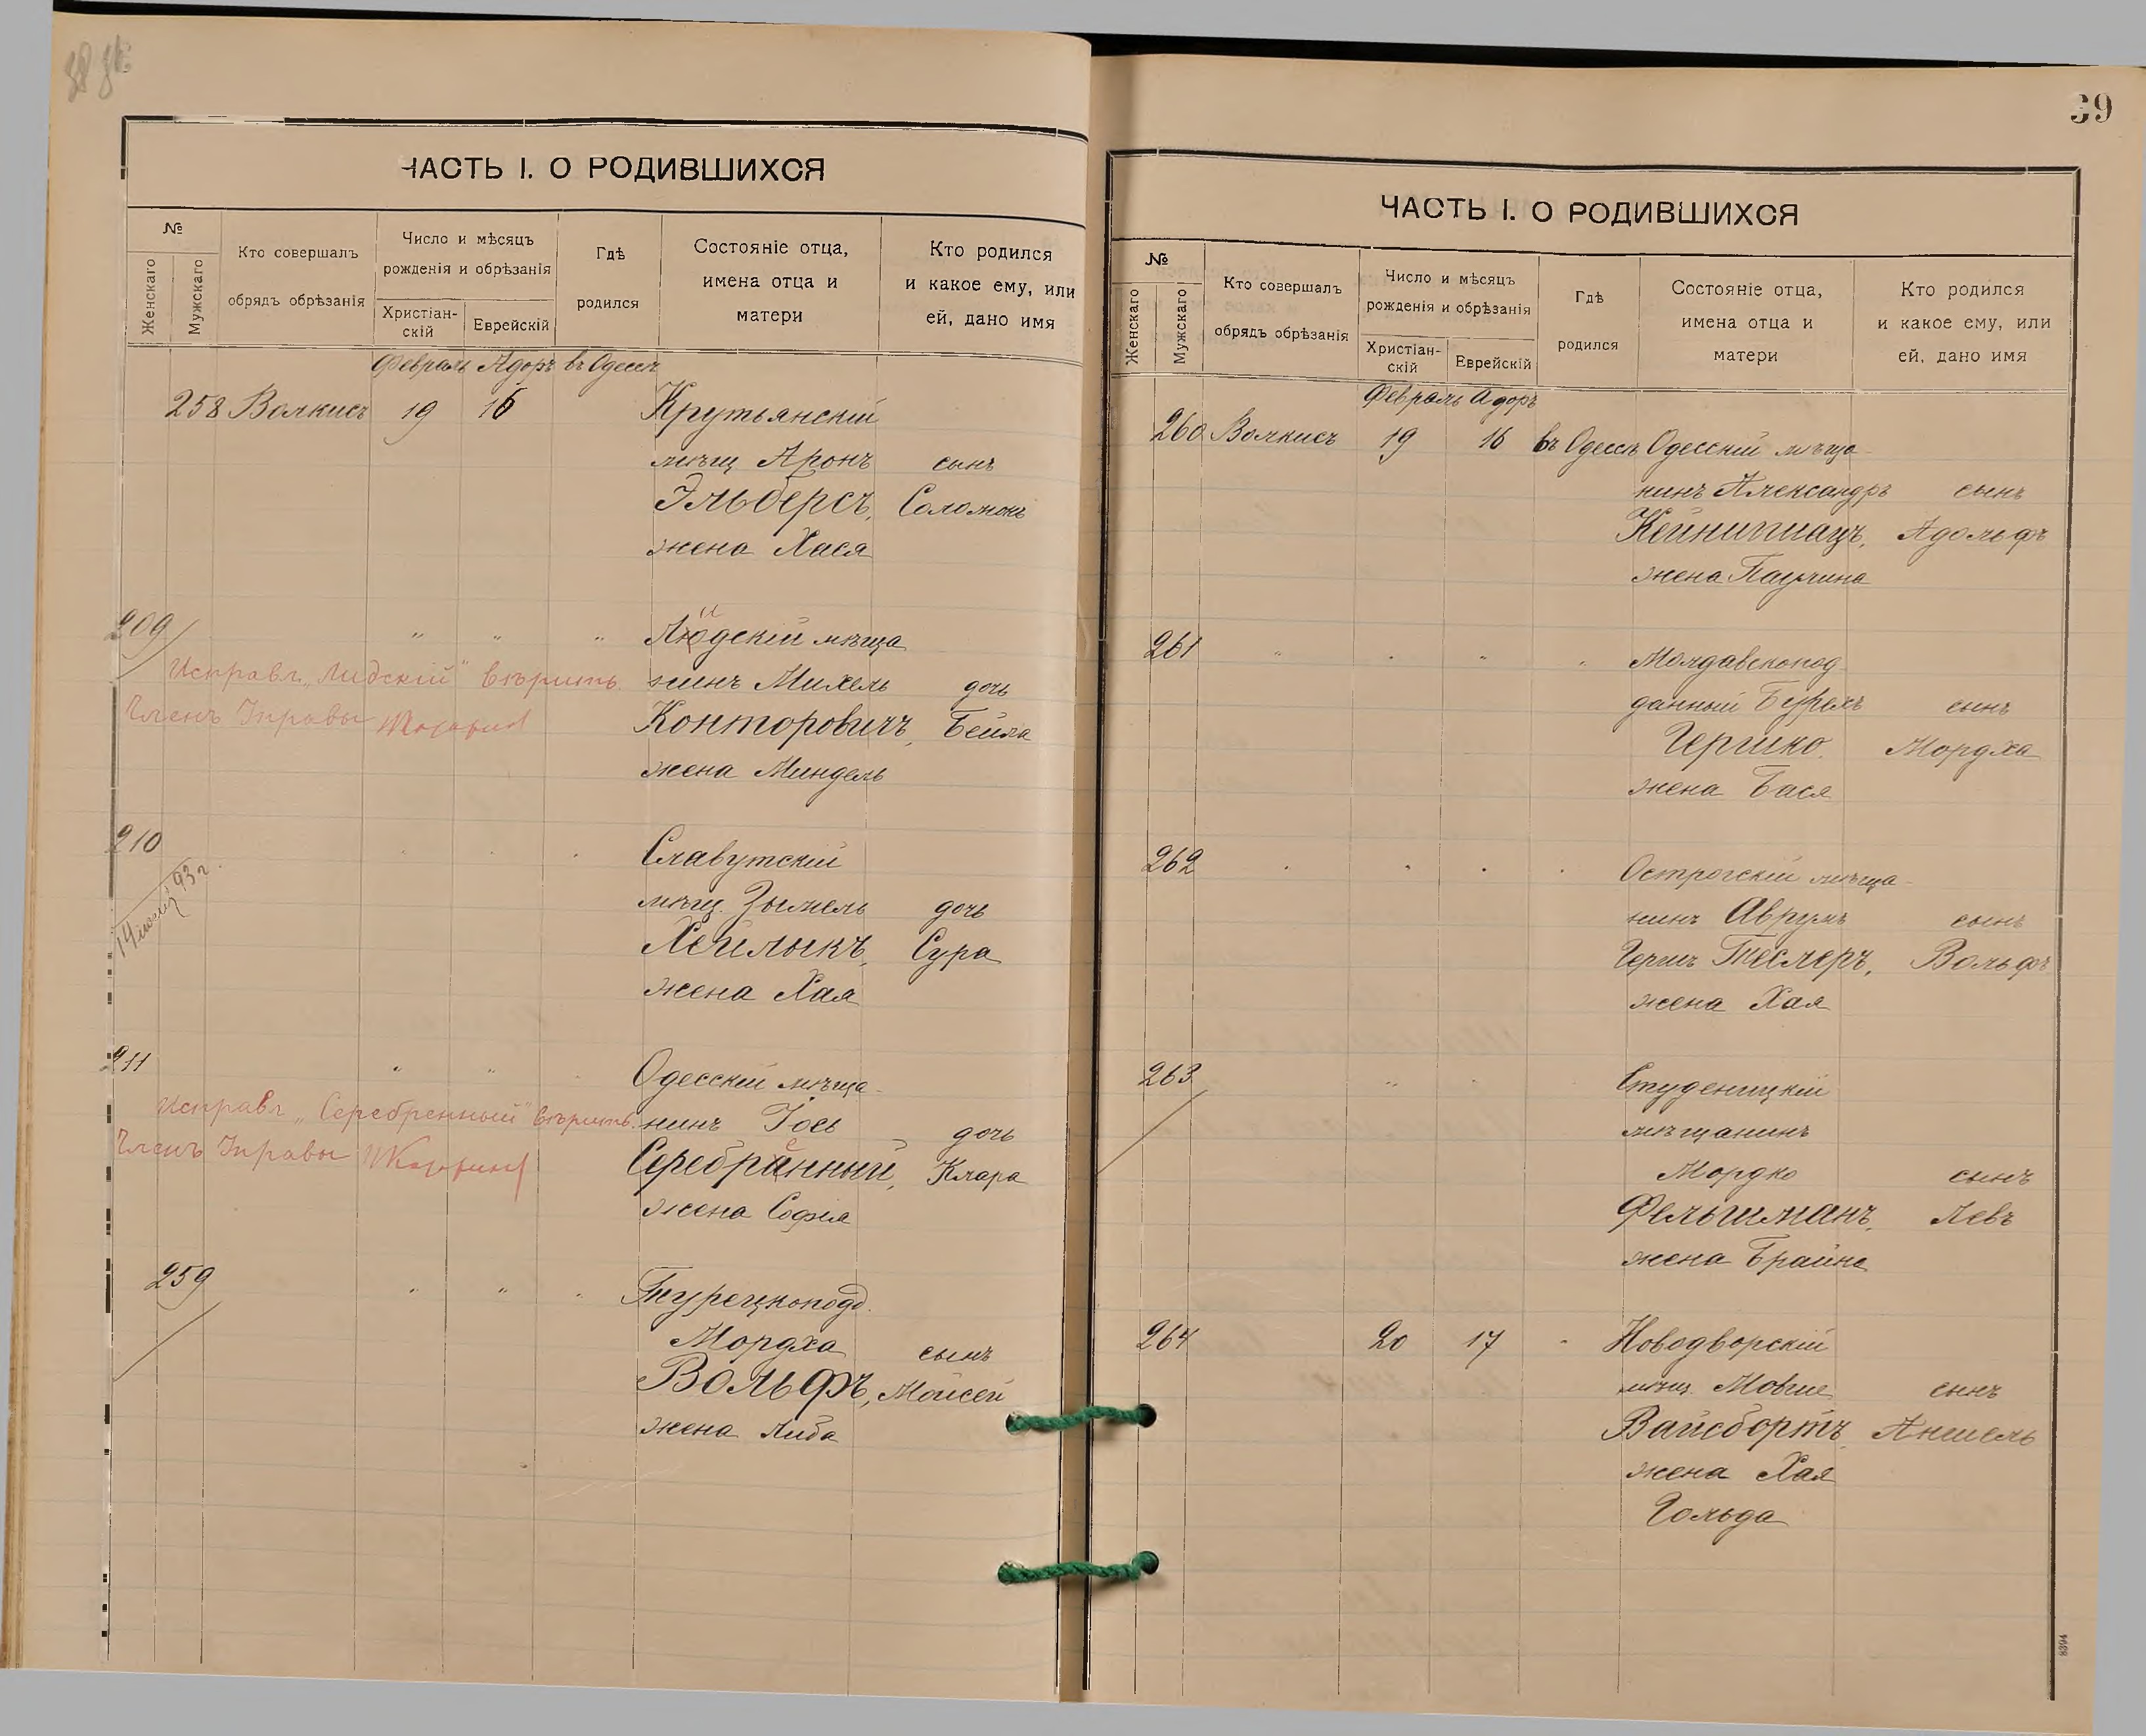 ЧАСТЬ I. О РОДИВШИХСЯ
№
Женскаго
Мужскаго
Кто совершалъ
обрядъ обрѣзанія
Число и мѣсяцъ
рожденія и обрѣзанія
Христіан-
скій
Еврейскій
Гдѣ
родился
Состояніе отца,
имена отца и
матери
Кто родился
и какое ему, или
ей, дано имя
Февраль Адоръ въ Одессѣ
258 Волкисъ 19 16 Крутьянскій
мѣщ Аронъ сынъ
Эльберсъ, Соломонъ
жена Хася
209 " " " Людскій мѣща
и
Исправл. „Лидскій" вѣрить. нинъ Михель дочь
Членъ Управы Конторовичъ, Бейла
жена Миндель
210 Славутскій
14 93 г.
мѣщ. Зысмель дочь
Хейлыкъ, Сура
жена Хая
211 " " Одесскій мѣща-
Исправл „Серебренный" вѣрить. нинъ Іось дочь
е
Членъ Управы Серебрянный, Клара
жена Софія
259 " " Турецкопод.
Мордха сынъ
Вольфъ, Мойсей
жена Либа
39
ЧАСТЬ I. О РОДИВШИХСЯ
№
Женскаго
Мужскаго
Кто совершалъ
обрядъ обрѣзанія
Число и мѣсяцъ
рожденія и обрѣзанія
Христіан-
скій
Еврейскій
Гдѣ
родился
Состояніе отца,
имена отца и
матери
Кто родился
и какое ему, или
ей, дано имя
Февраль Адоръ
260 Волкисъ 19 16 въ Одессѣ Одесскій мѣща-
нинъ Александръ сынъ
Кейнишацъ, Адольфъ
жена Паулина
261 " " " Молдавскопод
данный Бурехъ сынъ
Гершко Мордха
жена Бася
262 Острогскій мѣща-
нинъ Аврумъ сынъ
Гершъ Теслеръ, Вольфъ
жена Хая
263 " Студеницкій
мѣщанинъ
Мордко сынъ
Фельшманъ, Левъ
жена Брайна
264 20 17 Новодворскій
мѣщ. Мовше сынъ
Вайсбортъ, Аншель
жена Хая
Гольда
8394